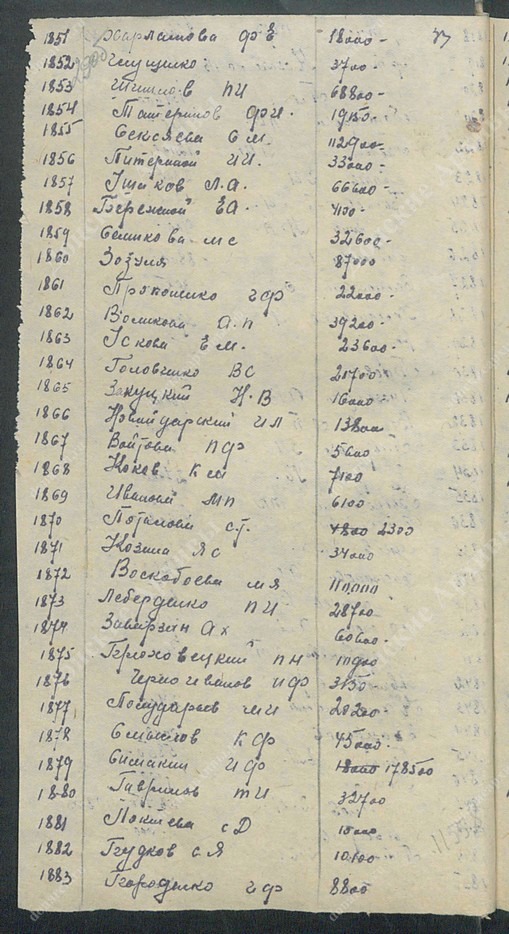 1851 Харламова Ф Е 18000 -
1852 Глущенко 3700 -
1853 Шишлов П И 68800 -
1854 Татеринов Ф И. 19150 -
1855 Сексяева Е М. 112900 -
1856 Питерской И И. 33000 -
1857 Ушаков Л. А. 66600 -
1858 Бережной Е А. 4100 -
1859 Сенькова М С 32600 -
1860 Зозуля 87000
1861 Прокошенко И Ф 22000 -
1862 Волшкова А. П 39200 -
1863 Ускова Е М. 23600 -
1864 Головченко В С 21700
1865 Закуцкий Н. В 16000
1866 Новайдарский И Л 13800
1867 Войтова П Ф 5600
1868 Коков К М 7100
1869 Иванова М П 6100
1870 Потапова С Т. 4800 2300
1871 Козина Я С 34000
1872 Воскобоева М Я 110,000
1873 Леберденко П И 28700
1874 Завирзин А Х 60600 -
1875 Гроховецкий П Н 11900
1876 Черноиванов И Ф 3150
1877 Посударев И И 20200
1878 Смыслов К Ф 45000 -
1879 Симакин И Ф 18000 178500
1880 Гаврилов Т И 32700
1881 Локтева С Д 10000
1882 Гудков С Я 10100
1883 Городенко И Ф 8800